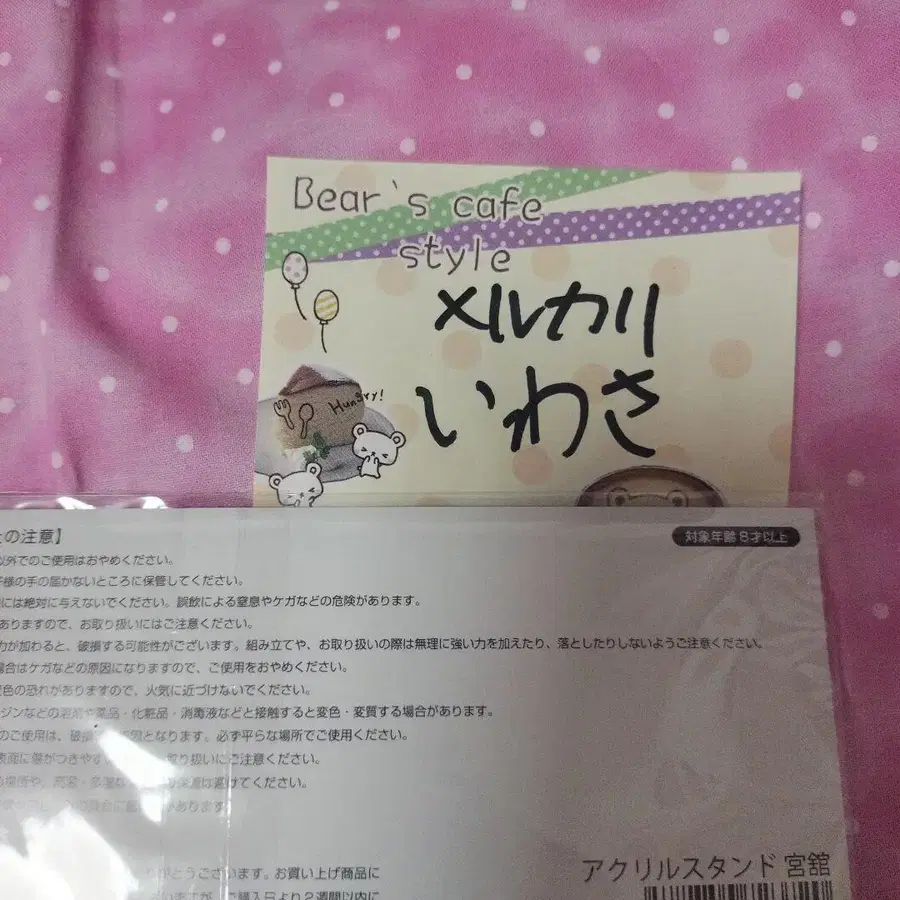 Bear's cafe
style
メルカリ
いわさ
Hungry!
の注意】
対象年齢8才以上
以外でのご使用はおやめください。
様の手の届かないところに保管してください。
には絶対に与えないでください。誤飲による窒息やケガなどの危険があります。
ありますので、お取り扱いにはご注意ください。
力が加わると、破損する可能性がございます。組み立てや、お取り扱いの際は無理に強い力を加えたり、落としたりしないようご注意ください。
場合はケガなどの原因になりますので、ご使用をおやめください。
変色の恐れがありますので、火気に近づけないでください。
ジンなどの溶剤や薬品・化粧品・消毒液などと接触すると変色・変質する場合があります。
のご使用は、破損の原因となります。必ず平らな場所でご使用ください。
表面に傷がつきやすい 取り扱いにご注意ください。
場所や、高温・多湿 は避けてください。
があります
がとうございます。お買い上げ商品に
ご購入日より2週間以内に
アクリルスタンド 宮舘